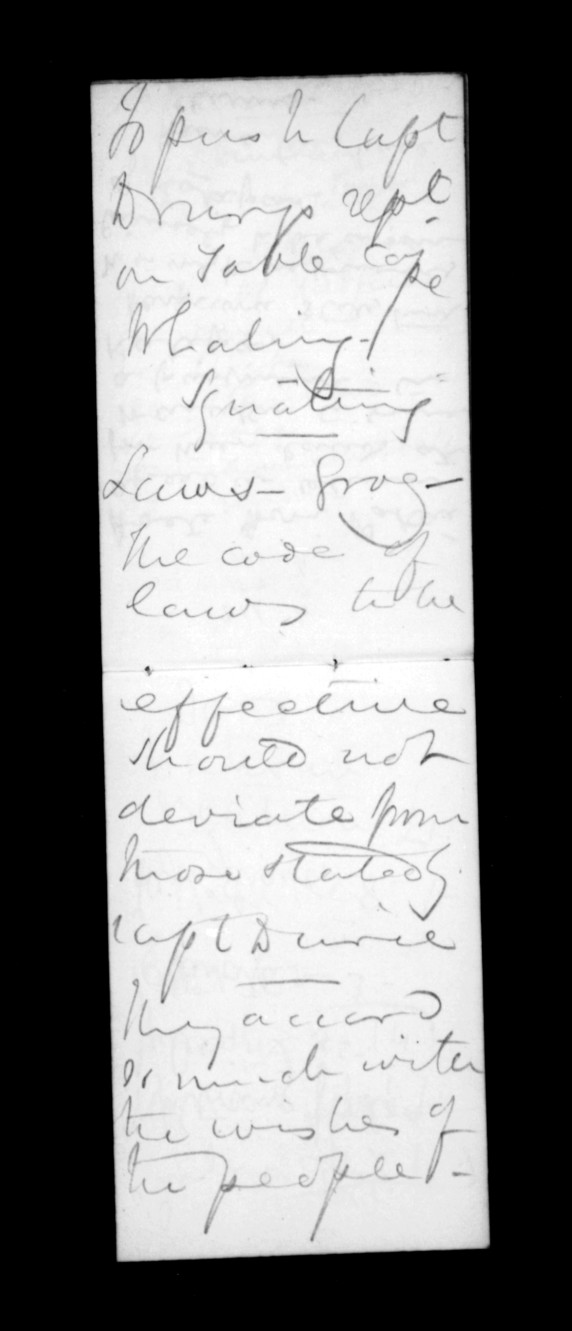 To Capt
Drury's rept
on Table Cape
Whaling -
Squatting
Laws - Grog -
The code of
laws to be
effective
should not
deviate from
those stated by
Capt Durie
They accord
so much with
the wishes of
the people -